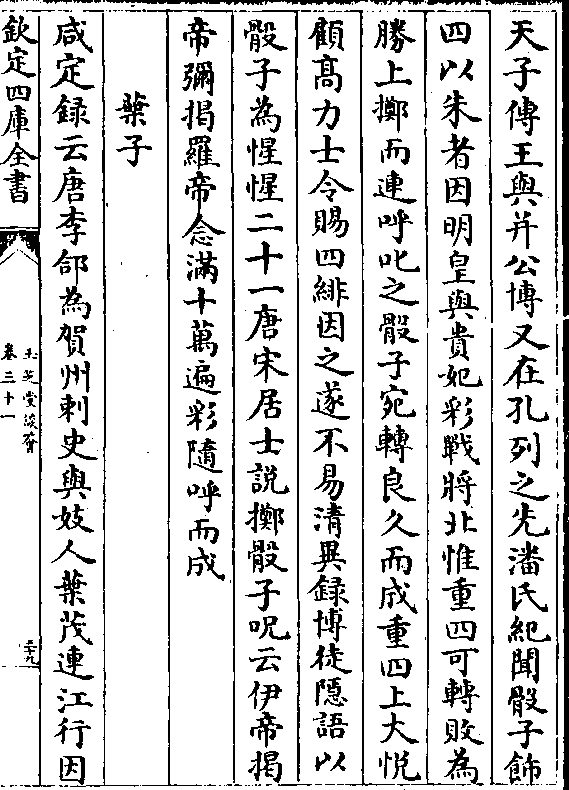 天子傳王與井公博又在孔列之先潘氏紀聞骰子飾
四以朱者因明皇與貴妃彩戰將北惟重四可轉敗為
勝上擲而連呼叱之骰子宛轉良久而成重四上大悅
顧高力士令賜四緋因之遂不易清異録博徒隱語以
骰子為惺惺二十一唐宋居士說擲骰子呪云伊帝掲
帝彌掲羅帝念滿十萬遍彩隨呼而成
葉子
咸定録云唐李郃為賀州刺史與妓人葉茂連江行因
欽定四庫全書
玉芝堂談薈
卷三十一
三十九